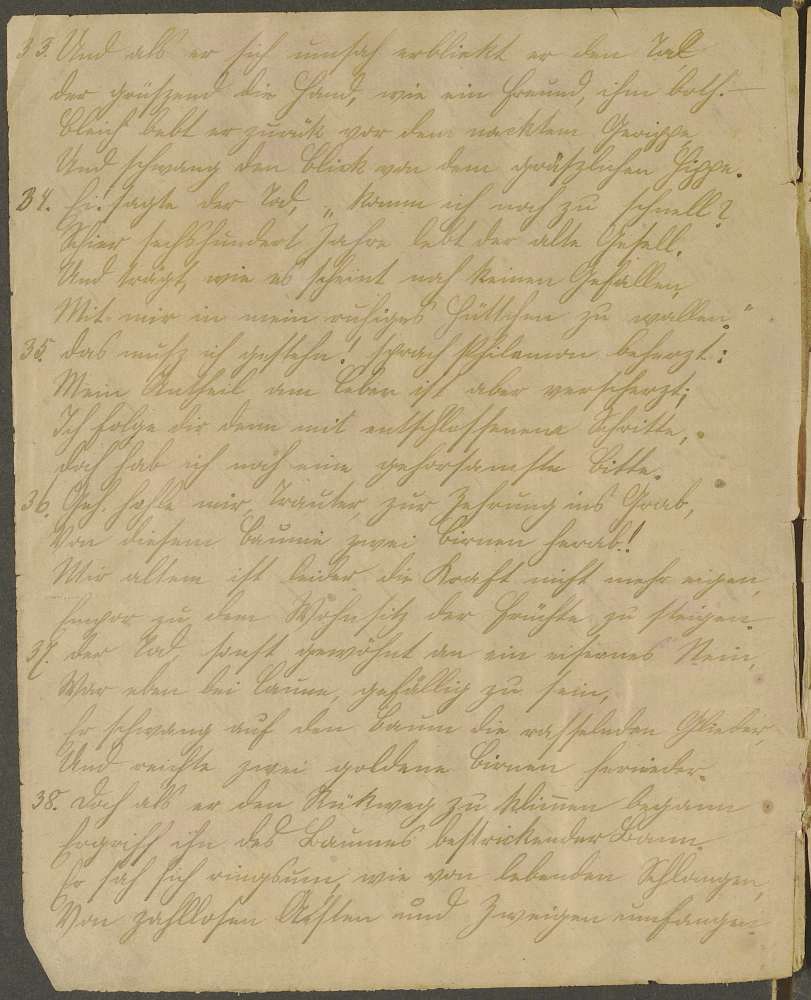 33. Und als er sich umsah erblickt er den Tod
der grüßend die Hand, wie ein Freund, ihm both. –
Bleich bebt er zurück vor dem nacktem Gerippe
Und schwang den Blick von dem gräßlichen Hippe.
34. Ei! sagte der Tod, „ komm ich noch zu schnell?
Schier sechshundert Jahre lebt der alte Gesell.
Und trägt, wie es scheint noch keinen Gefallen,
Mit mir in mein ruhiges Hüttchen zu wallen."
35. das muß ich gestehn! sprach Philemon beherzt:
Mein Antheil am Leben ist aber verscherzt;
Ich folge dir denn mit entschlossenem Schritte,
doch hab ich noch eine gehorsamste Bitte.
36. Geh. hohle mir, Trauter, zur Zehrung ins Grab,
Von diesem Baume zwei Birnen herab!
Mir altem ist leider die Kraft nicht mehr eigen,
Empor zu dem Wohnsitz der Früchte zu steigen.
37. der Tod, sonst gewöhnt an ein eisernes Nein,
War eben bei Laune, gefällig zu sein,
Er schwang auf den Baum die rasselnden Glieder,
Und reichte zwei goldene Birnen hernieder.
38. Doch als er den Rükweg zu klimen begann
Ergriff ihn des Baumes bestrickender Bann.
Er sah sich ringsum, wie von lebenden Schlangen,
Von zahllosen Aesten und Zweigen umfangen